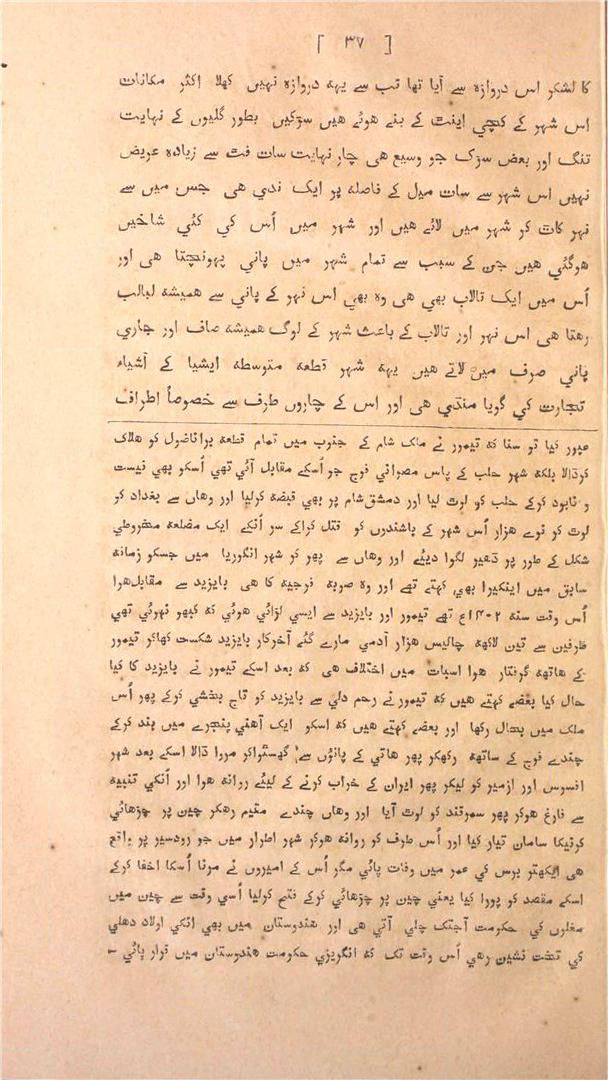 [ ٣٧ ]
کا لشکر اس دروازہ سے آیا تھا تب سے یہہ دروازہ نہیں کھلا اکثر مکانات
اس شہر کے کچی اینٹ کے بنے ہوئے ہیں سڑکیں بطور گلیوں کے نہایت
تنگ اور بعض سڑک جو وسیع ہی چار نہایت سات فٹ سے زیادہ عریض
نہیں اس شہر سے سات میل کے فاصلہ پر ایک ندی ہی جس میں سے
نہر کاٹ کر شہر میں لائے ہیں اور شہر میں اُس کی کئی شاخیں
ہوگئی ہیں جن کے سبب سے تمام شہر میں پانی پہونچتا ہی اور
اُس میں ایک تالاب بھی ہی وہ بھی اس نہر کے پانی سے ہمیشہ لبالب
رہتا ہی اس نہر اور تالاب کے باعث شہر کے لوگ ہمیشہ صاف اور جاری
پانی صرف میں لاتے ہیں یہہ شہر قطعہ متوسطہ ایشیا کے اشیاء
تجارت کی گویا منڈی ہی اور اس کے چاروں طرف سے خصوصاً اطراف
عبور کیا تو سنا کہ تیمور نے ملک شام کے جنوب میں تمام قطعہ براناضول کو ہلاک
کرڈالا بلکہ شہر حلب کے پاس مصرانی فوج جو اُسکے مقابل آئی تھی اُسکو بھی نیست
و نابود کرکے حلب کو لوٹ لیا اور دمشق شام پر بھی قبضہ کرلیا اور وہاں سے بغداد کو
لوٹ کو نوے ہزار اُس شہر کے باشندوں کو قتل کراکے سر اُنکے ایک مضلعہ مخروطی
شکل کے طور پر ڈھیر لگوا دیئے اور وہاں سے پھر کو شہر انگوریا میں جسکو زمانہ
سابق میں اینکیرا بھی کہتے تھے اور وہ صوبہ فرجیہ کا ہی بایزید سے مقابل ہوا
اُس وقت سنہ ١٤٠٢ع تھے تیمور اور بایزید سے ایسی لڑائی ہوئی کہ کبھو نہوئی تھی
طرفین سے تین لاکھہ چالیس ہزار آدمی مارے گئے آخرکار بایزید شکست کھاکر تیمور
کے ہاتھہ گرفتار ہوا اسبات میں اختلاف ہی کہ بعد اسکے تیمور نے بایزید کا کیا
حال کیا بعضے کہتے ہیں کہ تیمور نے رحم دلی سے بایزید کو تاج بخشی کرکے پھر اُس
ملک میں بحال رکھا اور بعضے کہتے ہیں کہ اسکو ایک آہنی پنجرے میں بند کرکے
چندے فوج کے ساتھہ رکھکر پھر ہاتی کے پانؤں سے گھسٹواکر مروا ڈالا اسکے بعد شہر
افسوس اور ازمیر کو لیکر پھر ایران کے خراب کرنے کے لیئے روانہ ہوا اور اُنکی تنبیہ
سے فارغ ہوکر پھر سمرقند کو لوٹ آیا اور وہاں چندے مقیم رہکر چین پر چڑھائی
کرنیکا سامان تیار کیا اور اُس طرف کو روانہ ہوکر شہر اطرار میں جو رودسیر پر واقع
ہی اکھتر برس کی عمر میں وفات پائی مگر اُس کے امیروں نے مرنا اُسکا اخفا کرکے
اسکے مقصد کو پورا کیا یعنی چین پر چڑھائی کرکے فتح کرلیا اُسی وقت سے چین میں
مغلوں کی حکومت آجتک چلی آتی ہی اور ہندوستان میں بھی انکی اولاد دہلی
کی تخت نشین رہی اُس وقت تک کہ انگریزی حکومت ہندوستان میں قرار پائی —